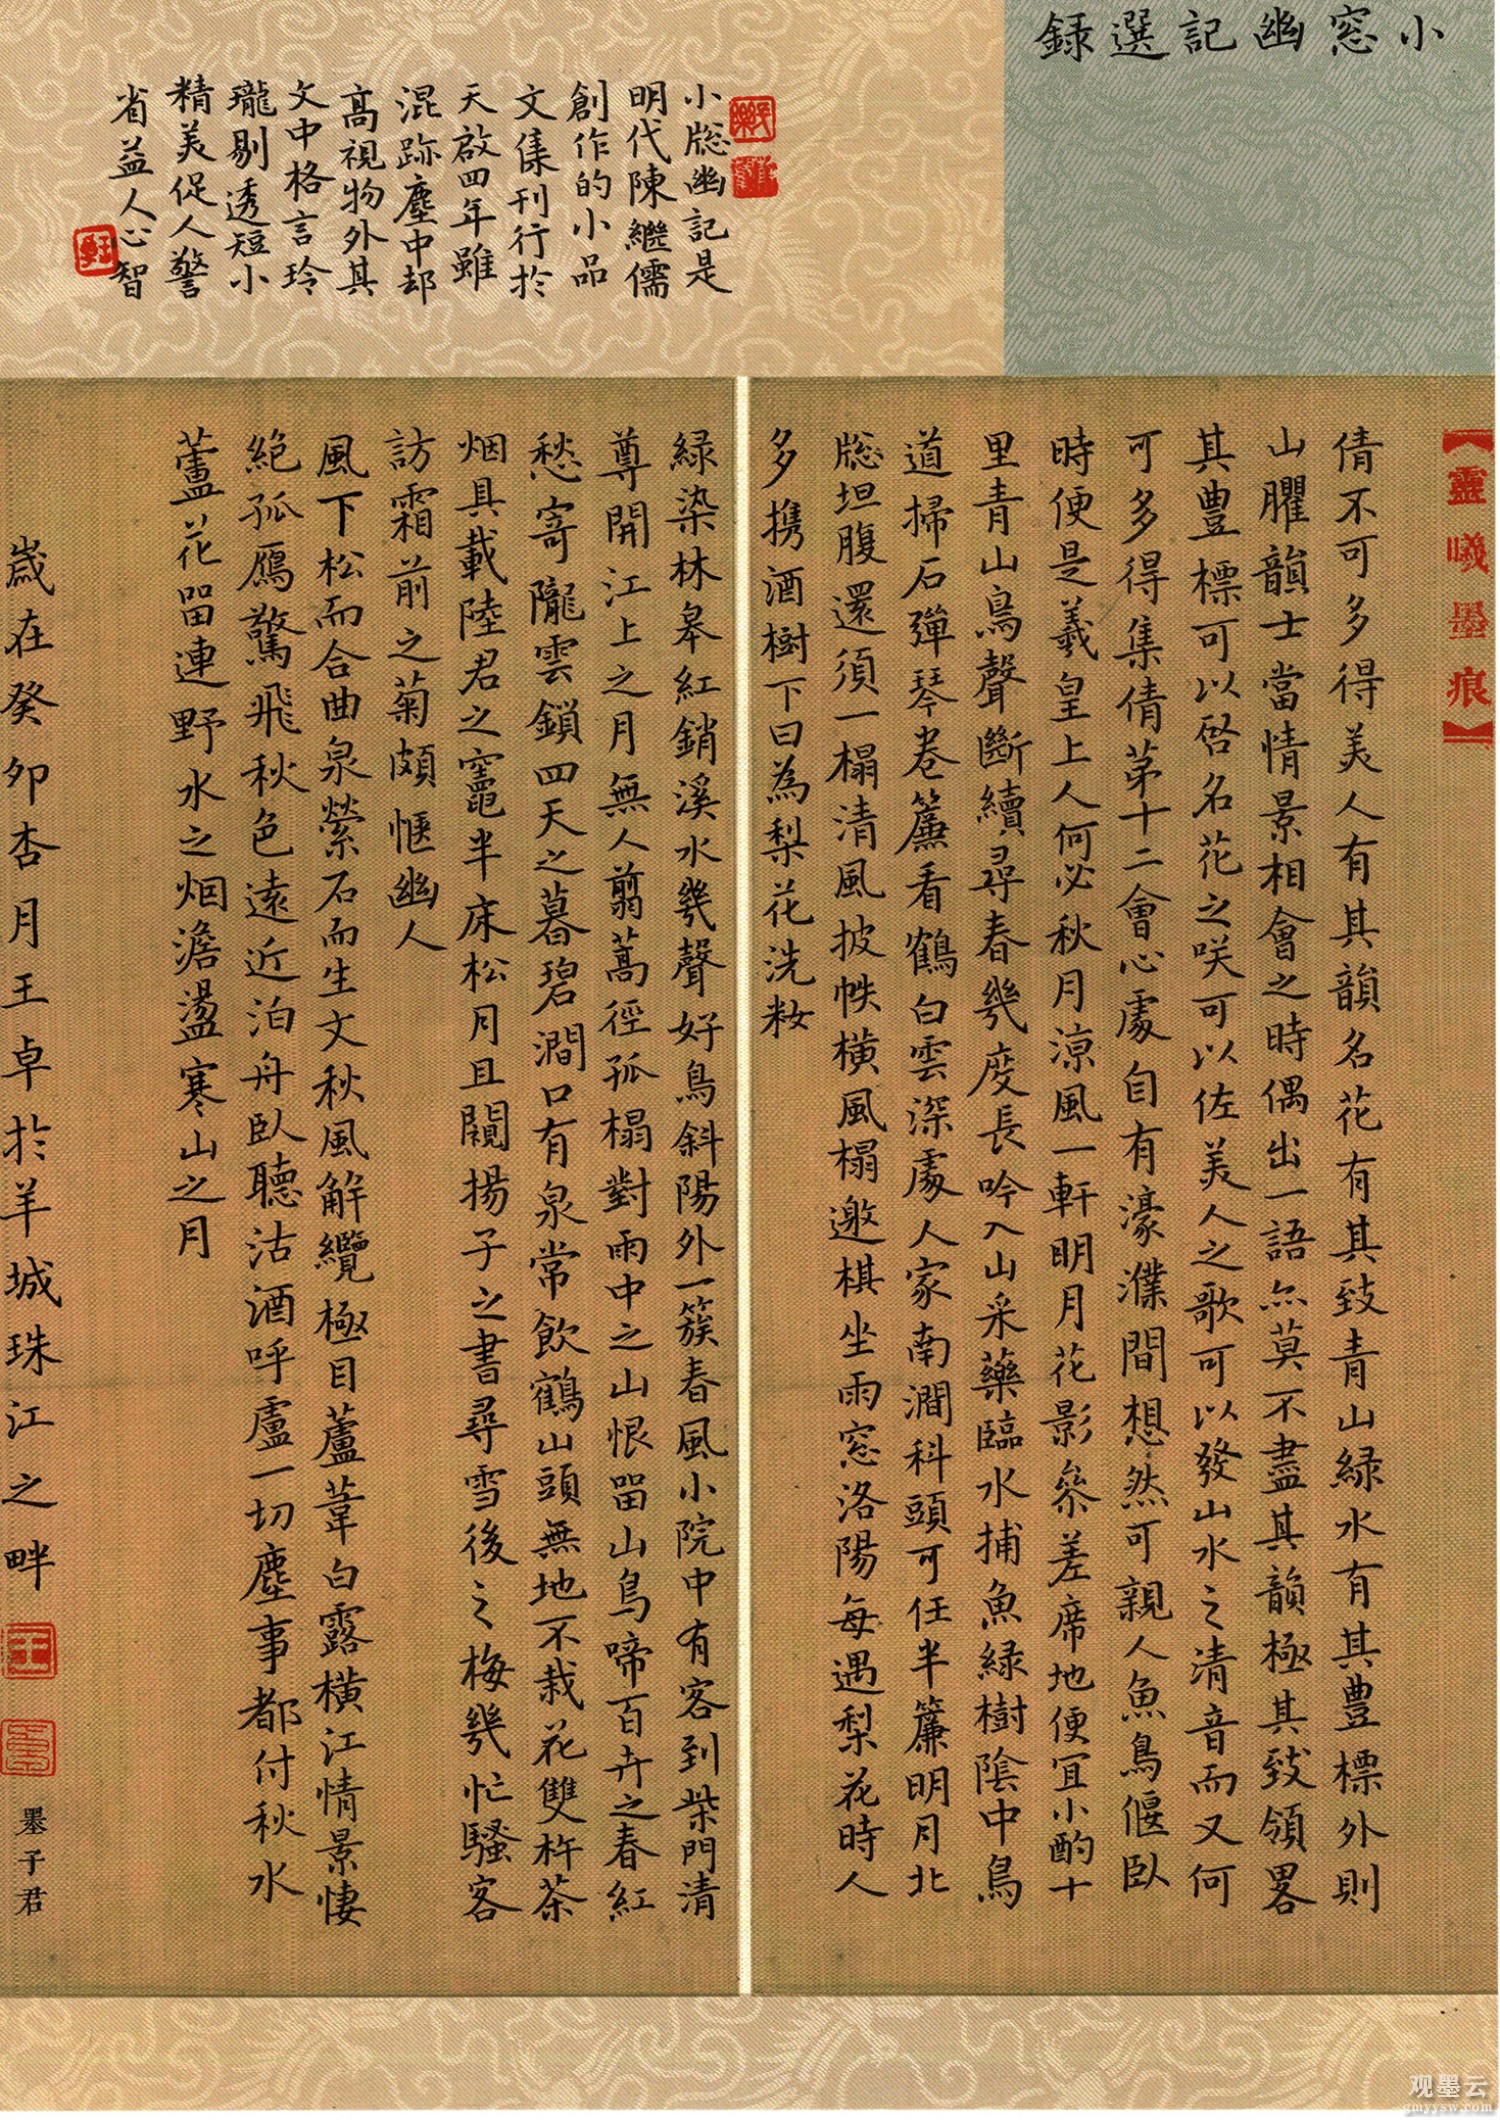 小窓幽記選録
小牕幽記是
明代陳繼儒
創作的小品
文集刊行於
天啟四年雖
混跡塵中却
高視物外其
文中格言玲
瓏剔透短小
精美促人警
省益人心智
【靈曦墨痕】
倩不可多得美人有其韻名花有其致青山緑水有其豊標外則
山臞韻士當情景相會之時偶出一語亦莫不盡其韻極其致領畧
其豊標可以啓名花之咲可以佐美人之歌可以發山水之清音而又何
可多得集倩苐十二會心處自有濠濮間想然可親人魚鳥偃臥
時便是羲皇上人何必秋月涼風一軒明月花影參差席地便宜小酌十
里青山鳥聲斷續尋春幾度長吟入山采藥臨水捕魚緑樹陰中鳥
道掃石彈琴卷簾看鶴白雲深處人家南澗科頭可任半簾明月北
牕坦腹還須一榻清風披帙橫風榻邀棋坐雨窓洛陽每遇梨花時人
多携酒樹下曰為梨花洗粧
緑染林皋紅銷溪水幾聲好鳥斜陽外一簇春風小院中有客到柴門清
尊開江上之月無人翦蒿徑孤榻對雨中之山恨畱山鳥啼百卉之春紅
愁寄隴雲鎖四天之暮碧澗口有泉常飲鶴山頭無地不栽花雙杵茶
烟具載陸君之竈半床松月且闚揚子之書尋雪後之梅幾忙騷客
訪霜前之菊頗愜幽人
風下松而合曲泉縈石而生文秋風解纜極目蘆葦白露橫江情景悽
絶孤鴈驚飛秋色遠近泊舟臥聽沽酒呼盧一切塵事都付秋水
蘆花畱連野水之烟澹盪寒山之月
嵗在癸卯杏月王卓於羊城珠江之畔
墨子君
观墨云
gmyysw.com